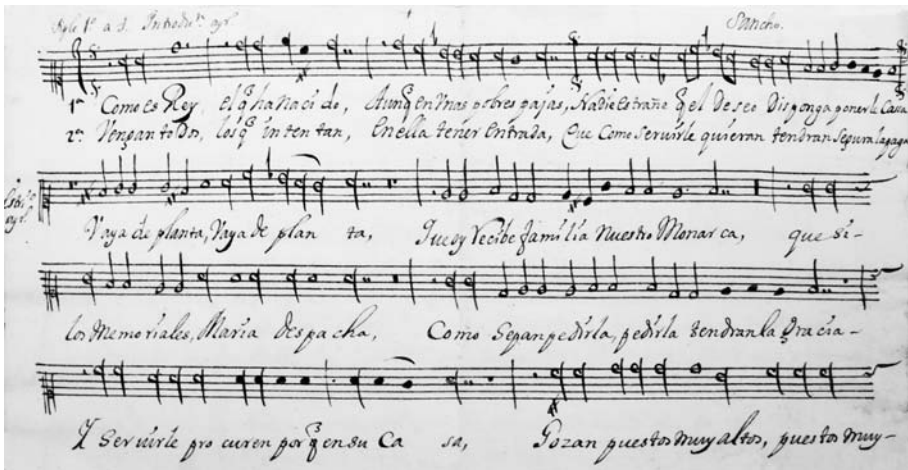 tiple 1º a 3. Introdn. ayr.
Sancho.
1ª Como es Rey, el q̃ ha naci do, Aunq̃ en Vnas pobres pajas, Nadie estrañe q̃ el Deseo Disponga ponerle Casa
2ª: Vengan todos, los q̃ in ten tan, En ella tener Entrada, Que Como seruirle quieran tendran segura la paga
Vaya de planta, Vaya de plan ta, Que oy Recibe familia Nuestro Monarca, que si-
los Memoriales, Maria despacha, Como Sepan pedirla, pedirla tendran la Gracia-
Y Seruirle pro curen por q̃ en su Ca sa, Gozan puestos muy altos, puestos muy-